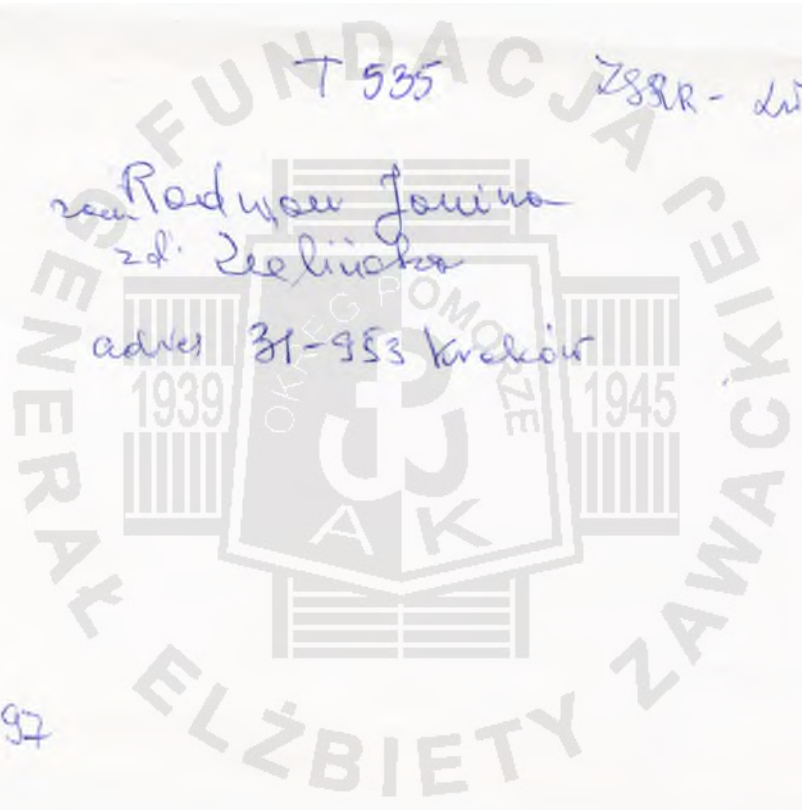 T 535
ZSRR -
zam. Radwan Janina
zd. Zielińska
adres 31-953 Kraków
97
FUNDACJA JEJ GENERAŁ ELŻBIETY ZAWACKIEJ
OKRĘG POMORZE
1939
1945
AK